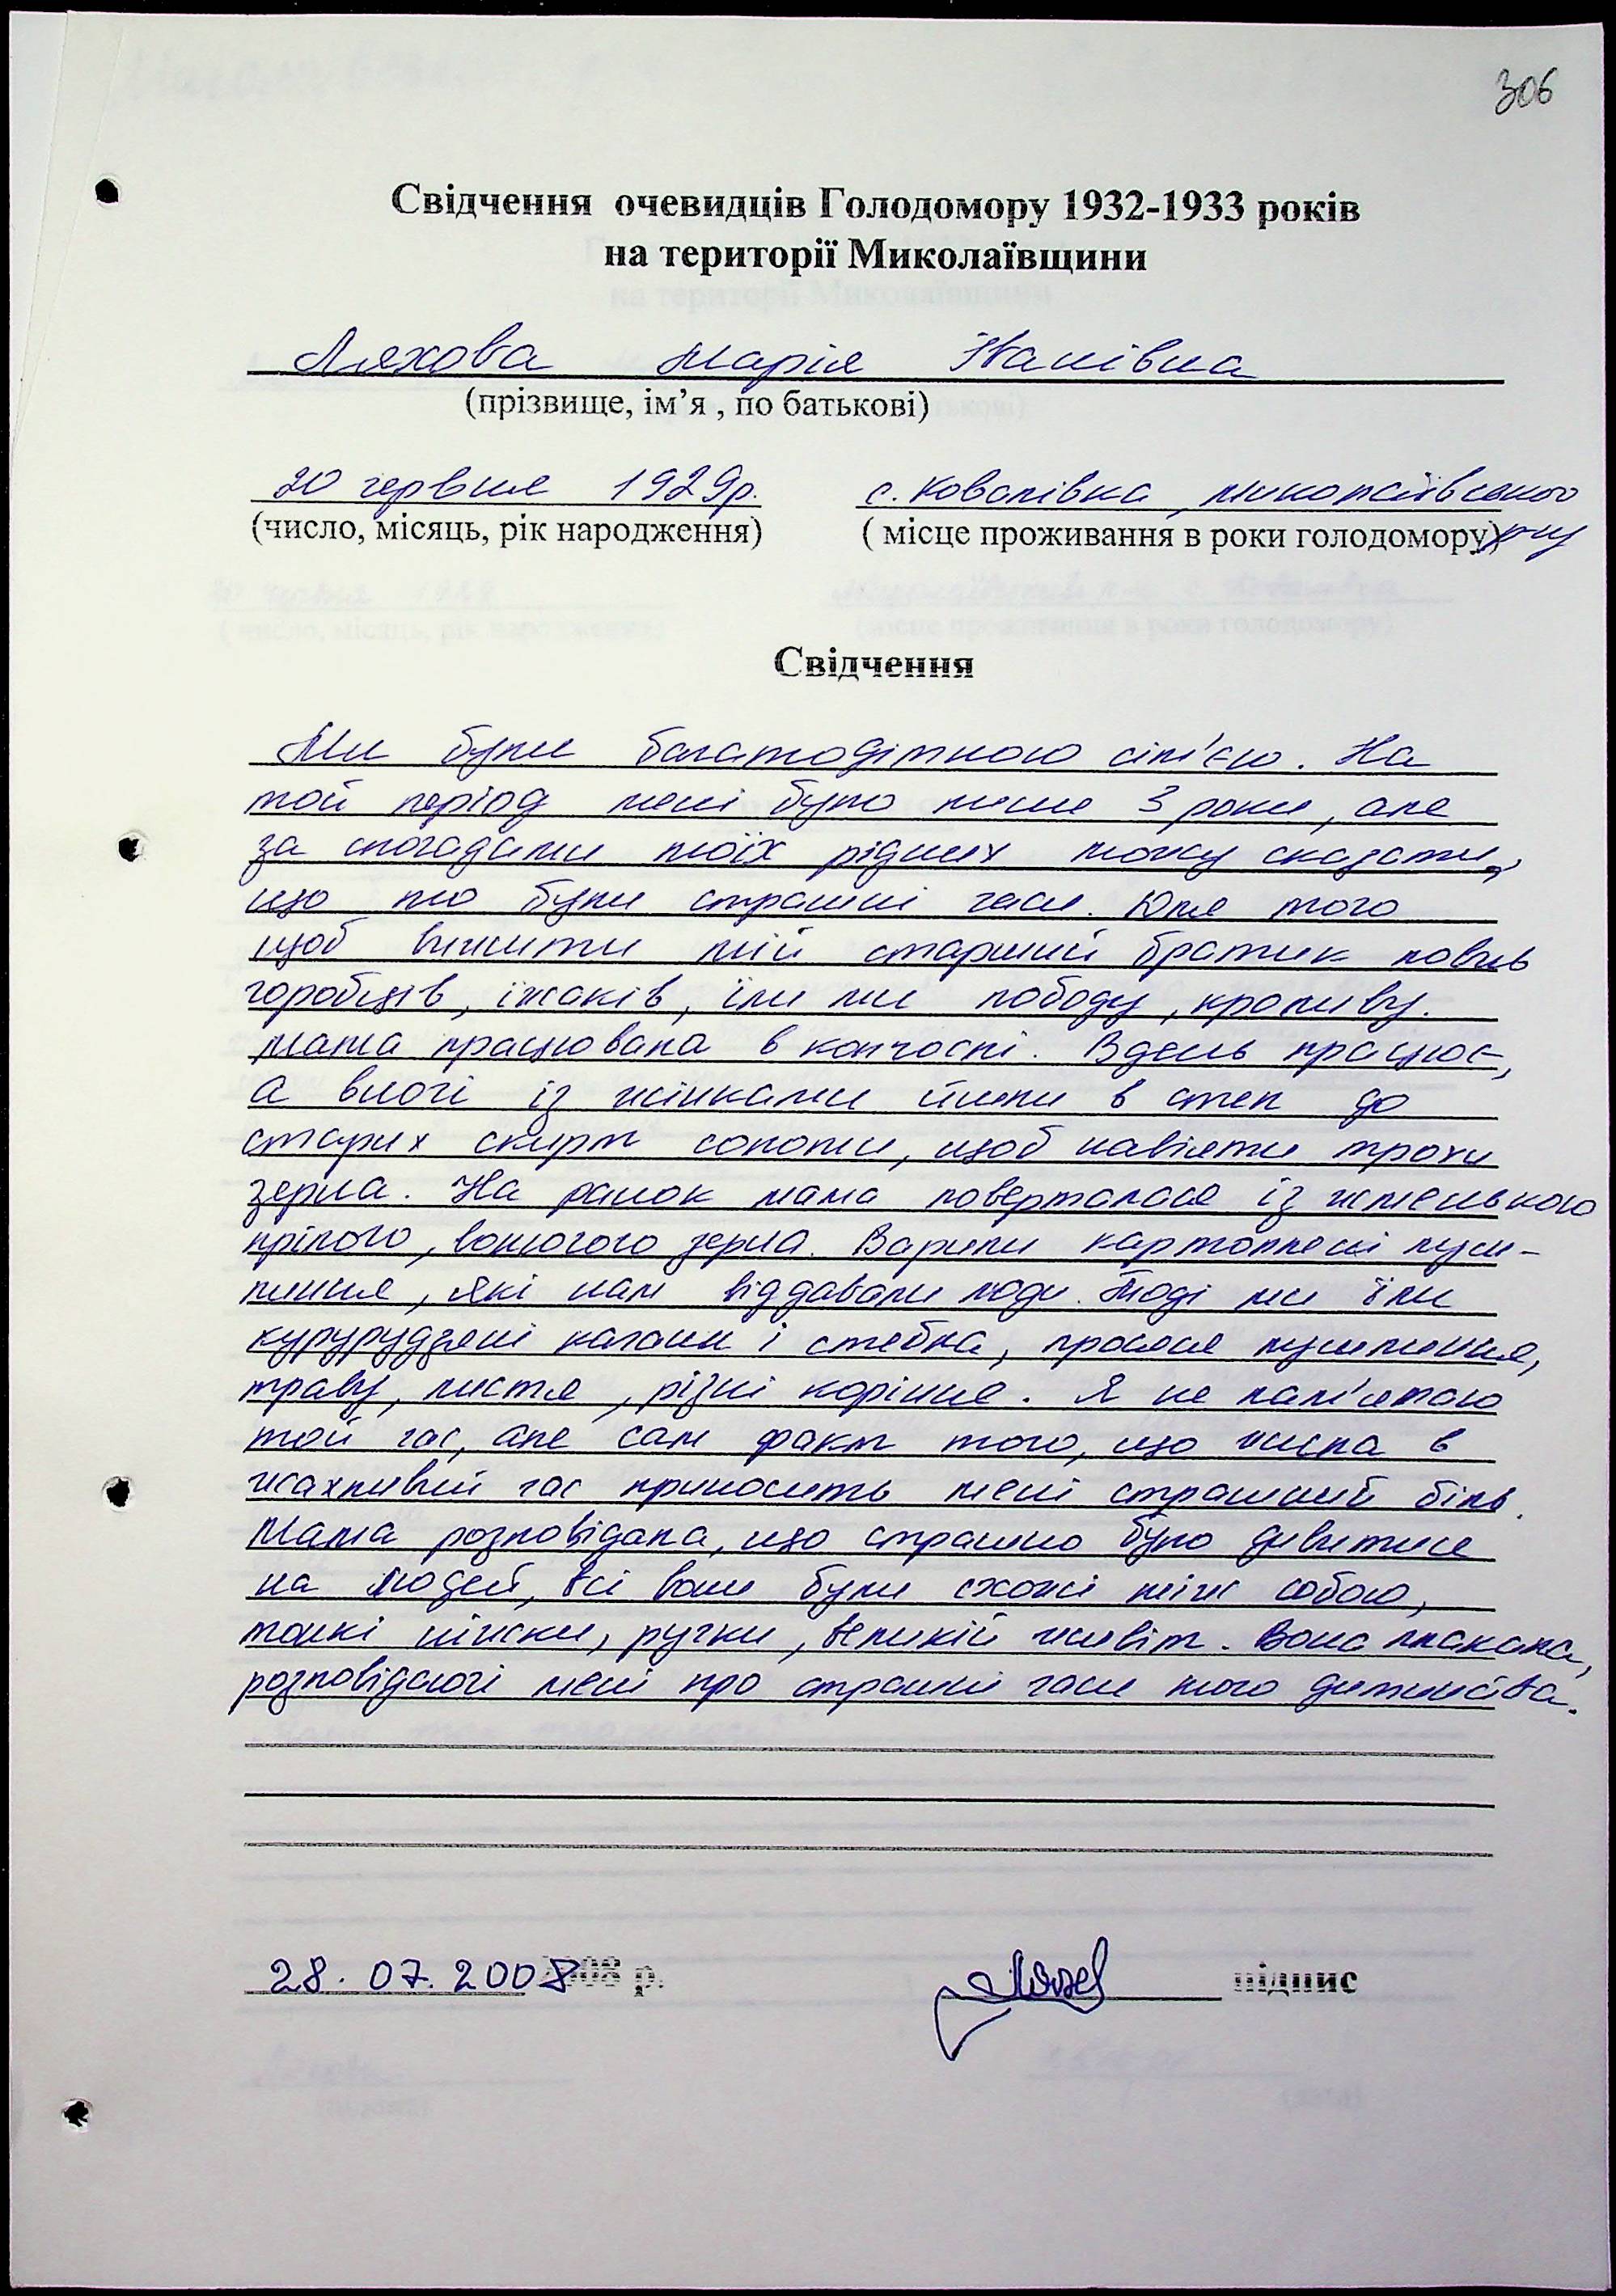 306
Свідчення очевидців Голодомору 1932-1933 років
на території Миколаївщини
Ляхова Марія Іванівна
(прізвище, ім’я , по батькові)
20 червня 1929р. с. Ковалівка, Миколаївського
(число, місяць, рік народження) ( місце проживання в роки голодомору) р-ну
Свідчення
Ми були багатодітною сім'єю. На
той період мені було лише 3 роки, але
за спогадами моїх рідних можу сказати,
що то були страшні часи. Для того
щоб вижити мій старший братик ловив
горобців, їжаків, їли ми лободу, кропиву.
Мама працювала в колгоспі. Вдень працює,
а вночі із жінками йшли в степ до
старих скирт соломи, щоб навіяти трохи
зерна. На ранок мама поверталася із жменькою
прілого, вологого зерна. Варили картопляні луш-
пиння, які нам віддавали люди. Тоді ми їли
курурудзяні качани і стебла, просяне лушпиння,
траву, листя, різні коріння. Я не пам'ятаю
той час, але сам факт того, що жила в
жахливий час приносить мені страшний біль.
Мама розповідала, що страшно було дивитися
на людей, всі вони були схожі між собою,
тонкі ніжки, ручки, великий живіт. Вона плакала,
розповідаючі мені про страшні часи мого дитинства.
28. 07. 2008 2008 р. підпис